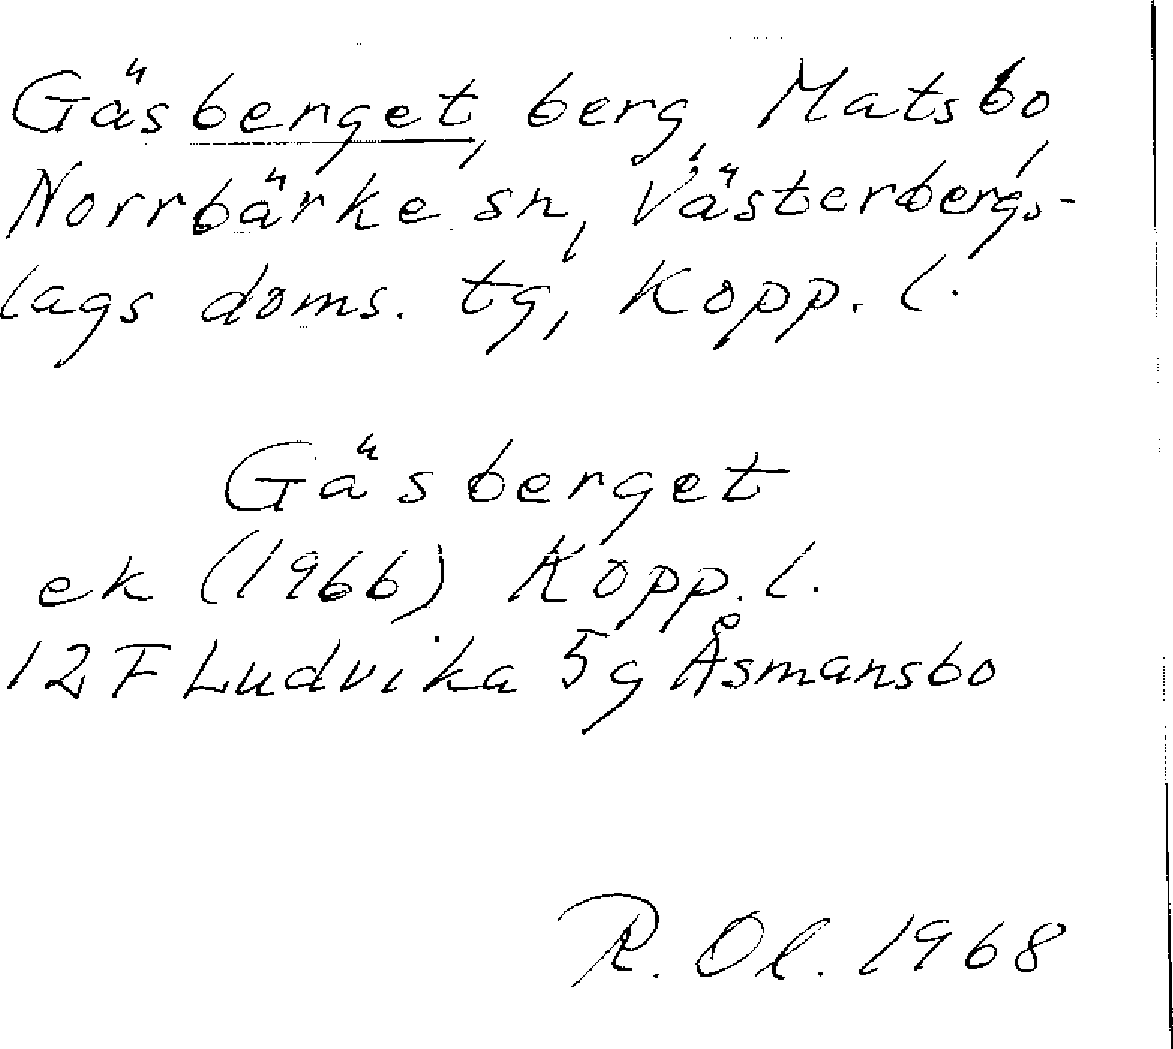 Gäsberget, berg, Matsbo,
Norrbärke sn, Västerbergs-
lags doms. tg, Kopp. l.
Gäsberget
ek (1966) Kopp. l.
12F Ludvika 5g Åsmansbo
R. Ol. 1968